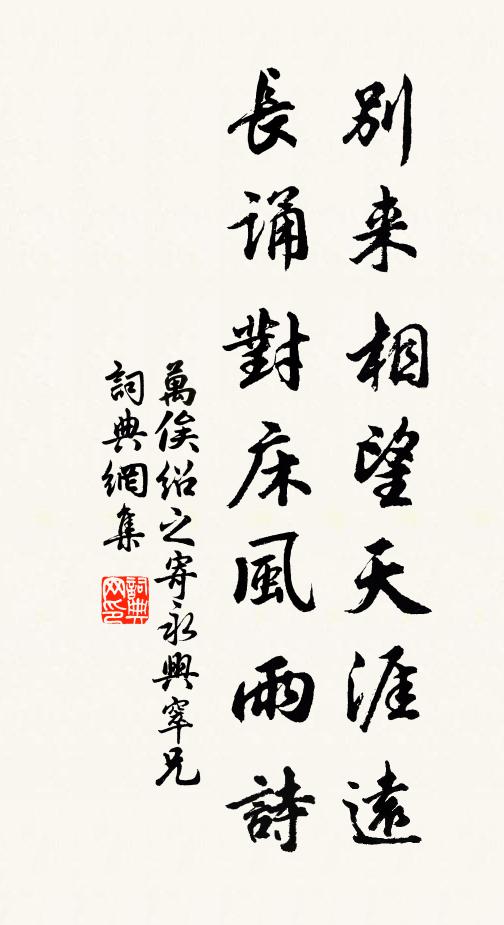 別来相望天涯遠
長誦對床風雨詩
萬俟紹之寄永興宰兄
詞典網集
詞典網印